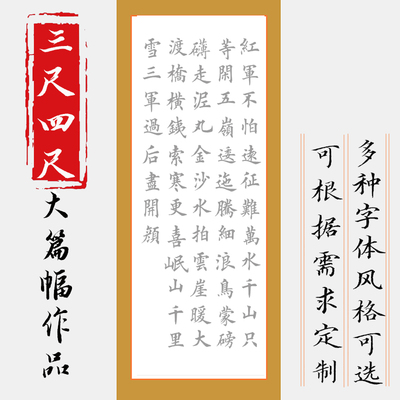 三尺四尺
大篇幅作品
紅軍不怕遠征難萬水千山只
等閑五嶺逶迤騰細浪鳥蒙磅
礴走泥丸金沙水拍雲崖暖大
渡橋橫鐵索寒更喜岷山千里
雪三軍過后盡開顏
多种字体风格可选
可根据需求定制